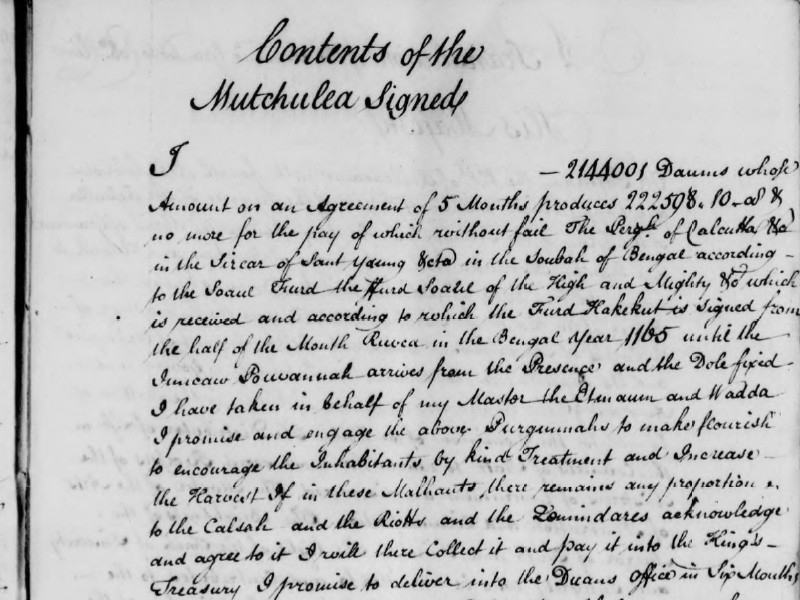 Contents of the
Mutchulea Signed
I — 2144001 Daums whose
Amount on an Agreement of 5 Months produces 222598.10.08 &
no more for the pay of which without fail The Pergh. of Calcutta &ca
in the Sircar of Saut Young &cta in the Soubah of Bengal according -
to the Soaul Furd the Furd Soazil of the High and Mighty &ca which
is received and according to which the Furd Hakekut is signed from
the half of the Month Ruvea in the Bengal Year 1165 until the
Imcaw Pouvannah arrives from the Presence and the Dole fixed -
I have taken in behalf of my Master the Etmaum and Wadda
I promise and engage the above Purgunnahs to make flourish
to encourage the Inhabitants by kind Treatment and Increase -
the Harvest If in these Malhauts there remains any proportion
to the Calsah and the Riotts and the Zemindares acknowledge
and agree to it I will there Collect it and pay it into the King's -
Treasury I promise to deliver into the Duans Office in Six Months